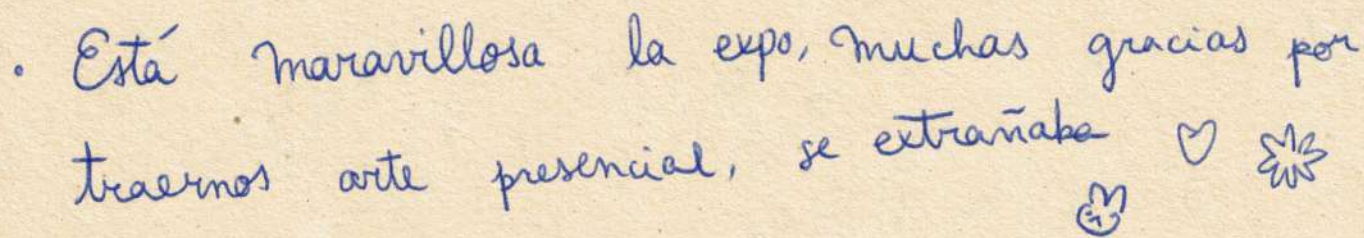 • Está maravillosa la expo, muchas gracias por
traernos arte presencial, se extrañaba ♡